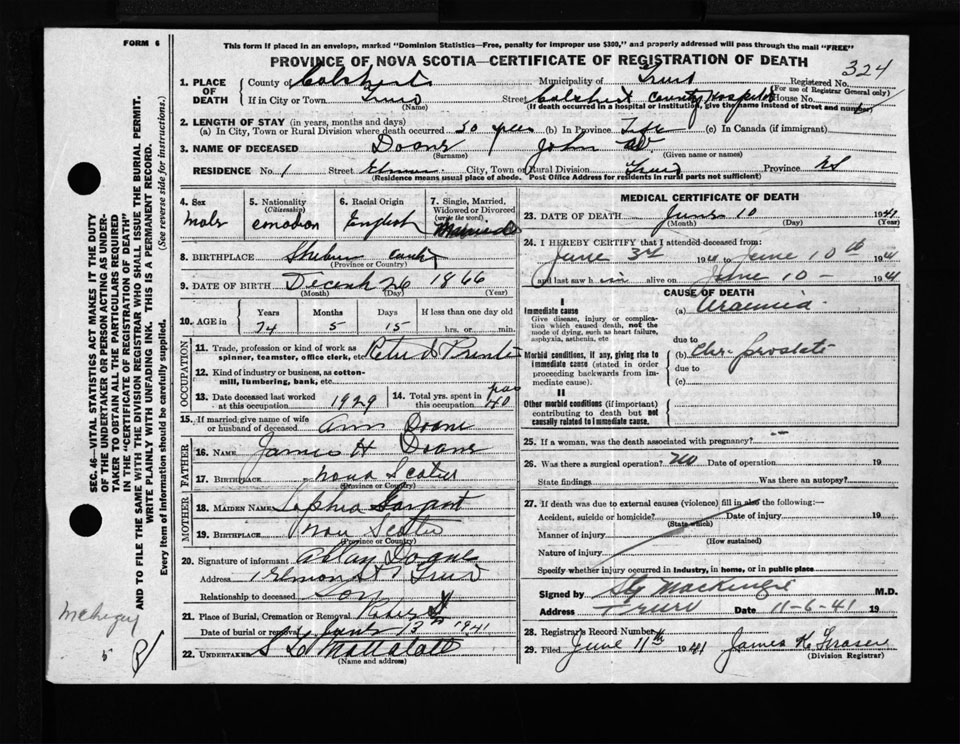 FORM 6
This form if placed in an envelope, marked "Dominion Statistics—Free, penalty for improper use $300," and properly addressed will pass through the mail "FREE"
PROVINCE OF NOVA SCOTIA—CERTIFICATE OF REGISTRATION OF DEATH
324
1. PLACE OF DEATH County of Colchest Municipality of Truro Registered No.
(For use of Registrar General only)
If in City or Town Truro Street Colchest County Hospital House No.
(Name) (If death occurred in a hospital or institution, give the name instead of street and number)
2. LENGTH OF STAY (in years, months and days)
(a) In City, Town or Rural Division where death occurred 30 yrs (b) In Province Life (c) In Canada (if immigrant)
3. NAME OF DECEASED Doane John W
(Surname) (Given name or names)
RESIDENCE No. 1 Street Elmon City, Town or Rural Division Truro Province NS
(Residence means usual place of abode. Post Office Address for residents in rural parts not sufficient)
4. Sex
Male
5. Nationality
(Citizenship)
Canadian
6. Racial Origin
English
7. Single, Married, Widowed or Divorced
(write the word)
Married
8. BIRTHPLACE
(Province or Country)
9. DATE OF BIRTH Decemb 26 1866
(Month) (Day) (Year)
10. AGE in Years Months Days If less than one day old
74 5 15 hrs. or min.
OCCUPATION
11. Trade, profession or kind of work as spinner, teamster, office clerk, etc.
12. Kind of industry or business, as cotton-mill, lumbering, bank, etc.
13. Date deceased last worked at this occupation 1929
14. Total yrs. spent in this occupation 40
15. If married give name of wife or husband of deceased Ann Doane
FATHER
16. NAME James H Doane
17. BIRTHPLACE Nova Scotia
(Province or Country)
MOTHER
18. MAIDEN NAME Sophia
19. BIRTHPLACE Nova Scotia
(Province or Country)
20. Signature of informant Allan Doane
Address 1 Elmon St Truro
Relationship to deceased Son
21. Place of Burial, Cremation or Removal
Date of burial or removal June 13 1941
22. UNDERTAKER
(Name and address)
MEDICAL CERTIFICATE OF DEATH
23. DATE OF DEATH June 10 1941
(Month) (Day) (Year)
24. I HEREBY CERTIFY that I attended deceased from
June 3rd 1941 to June 10th 1941
and last saw him alive on June 10 - 1941
CAUSE OF DEATH
I
Immediate cause (a) Uraemia
Give disease, injury or complication which caused death, not the mode of dying, such as heart failure, asphyxia, asthenia, etc
due to
Morbid conditions, if any, giving rise to immediate cause (stated in order proceeding backwards from immediate cause).
(b) Chr. prostate
due to
(c)
II
Other morbid conditions (if important) contributing to death but not causally related to immediate cause.
25. If a woman, was the death associated with pregnancy?
26. Was there a surgical operation? No Date of operation 19
State findings Was there an autopsy?
27. If death was due to external causes (violence) fill in also the following:—
Accident, suicide or homicide? Date of injury 19
(State which)
Manner of injury
(How sustained)
Nature of injury
Specify whether injury occurred in Industry, in home, or in public place
Signed by MacKenzie M.D.
Address Truro Date 11-6-41 19
28. Registrar's Record Number
29. Filed June 11th 1941 James K Fraser
(Division Registrar)
SEC. 46—VITAL STATISTICS ACT MAKES IT THE DUTY
OF THE UNDERTAKER OR PERSON ACTING AS UNDER-
TAKER TO OBTAIN ALL THE PARTICULARS REQUIRED
IN THE "CERTIFICATE OF REGISTRATION OF DEATH"
AND TO FILE THE SAME WITH THE DIVISION REGISTRAR WHO SHALL ISSUE THE BURIAL PERMIT.
WRITE PLAINLY WITH UNFADING INK. THIS IS A PERMANENT RECORD.
Every item of information should be carefully supplied. (See reverse side for instructions.)
5